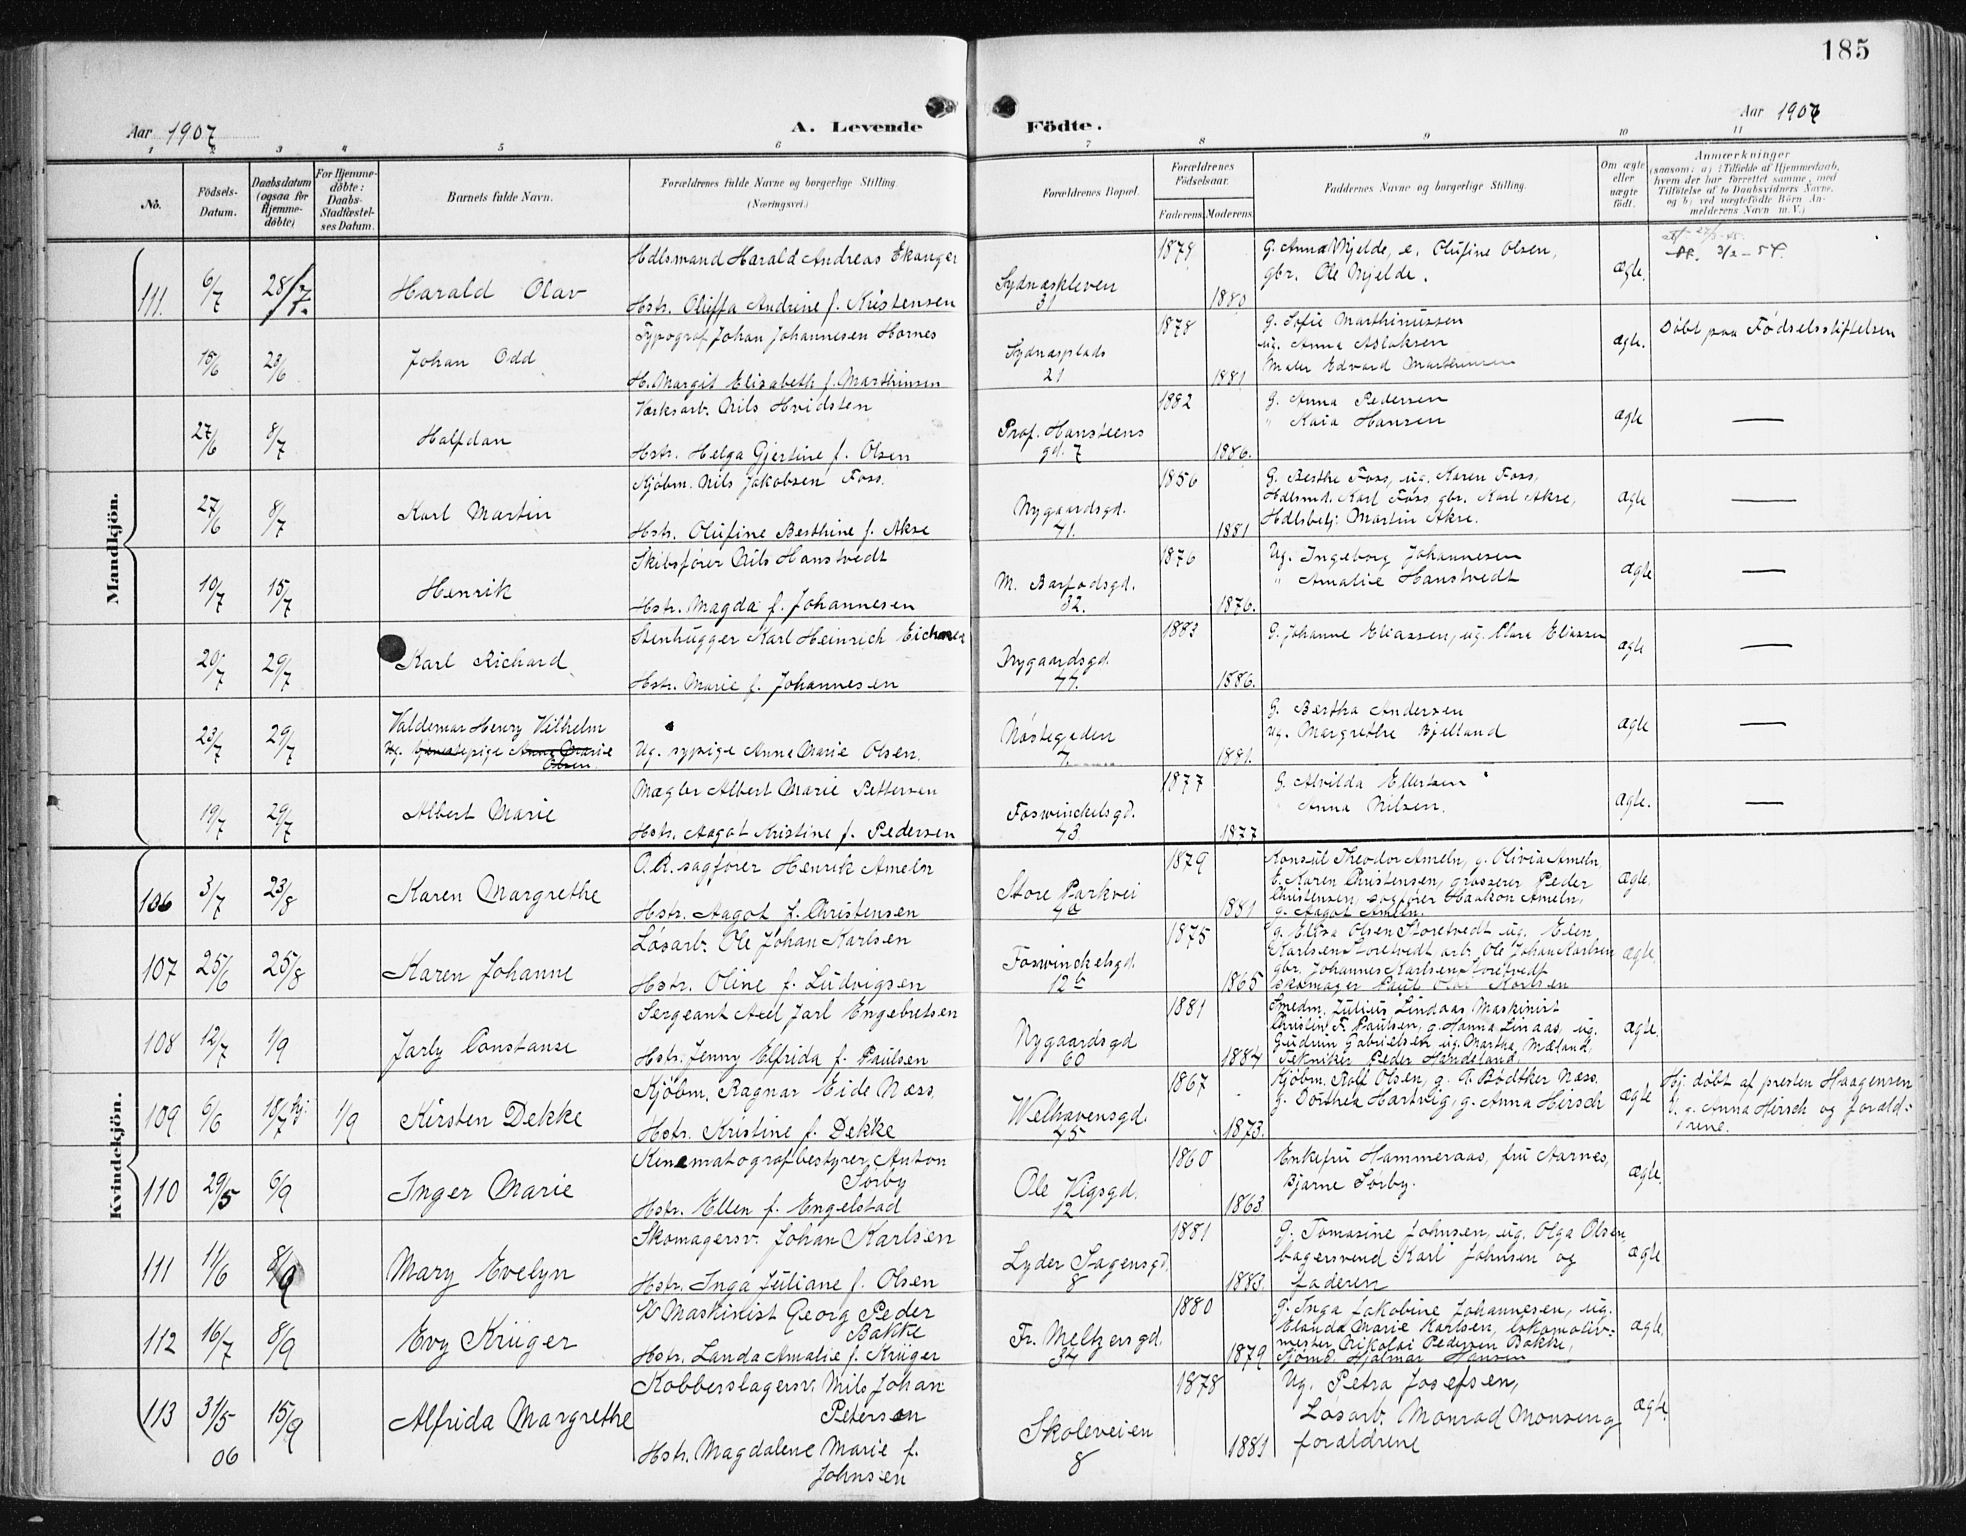 185
Aar 1907
A. Levende Födte.
Aar 1907
1 2 3 4 5 6 7 8 9 10 11
No.
Födsels-Datum.
Daabsdatum (ogsaa for Hjemme-döbte)
For Hjemme-döbte: Daabs-Stadfæstel-ses Datum.
Barnets fulde Navn.
Forældrenes fulde Navne og borgerlige Stilling.
(Næringsvei.)
Forældrenes Bopæl.
Forældrenes Födselsaar.
Faderens Moderens
Faddernes Navne og borgerlige Stilling.
Om ægte eller uægte födt.
Anmærkninger
(saasom: a) i Tilfælde af Hjemmedaab,
hvem der har forrettet samme, med
Tilföielse af to Daabsvidners Navne,
og b) ved uægtefödte Börn An-
melderens Navn m. V.)
Mandkjön.
111. 6/7 28/7. Harald Olav
Hdlsmand Harald Andreas Ekanger
Hstr. Oluffa Andrine f. Kristensen
Sydnæskleven 31
1878 1880
G. Anna Mjelde, e. Olufine Olsen,
gbr. Ole Mjelde.
ægte.
3/2-54.
15/6 23/6 Johan Odd
Typograf Johan Johannesen Hornes
H. Margit Elisabeth f. Marthinsen
Sydnæsplads 21
1878 1881
G. Sofie Marthinussen
ug. Anna Aslaksen
Maler Edvard Marthinsen
ægte.
Döbt paa Födselsstiftelsen
27/6 8/7 Halfdan
Værksarb. Nils Hvidsten
Hstr. Helga Gjertine f. Olsen
Prof. Hansteens gd. 7
1882 1886.
G. Anna Pedersen
" Kaia Hansen
ægte
27/6 8/7 Karl Martin
Kjöbm. Nils Jakobsen Foss.
Hstr. Olufine Berthine f. Akre
Nygaardsgd. 41.
1856 1881
G. Berthe Foss, ug. Karen Foss,
Hdlsmd. Karl Foss gbr. Karl Akre,
Hdlsbetj. Martin Akre.
ægte
10/7 15/7 Henrik
Skibsförer Nils Hanstvedt
Hstr. Magda f. Johannesen
M. Barfodsgd. 32.
1876 1876.
Ug. Ingeborg Johannesen
" Amalie Hanstvedt
ægte
20/7 29/7 Karl Richard
Stenhugger Karl Heinrich
Hstr. Marie f. Johannesen
Nygaardsgd. 77.
1883 1886.
G. Johanne Eliassen, ug. Clare Eliassen
ægte
23/7 29/7 Valdemar Henry Vilhelm
Ug. tjenestepige Anna Marie Olsen.
Ug. sypige Anna Marie Olsen.
Nöstegaden 7.
1881.
G. Bertha Andersen
ug. Margrethe Bjelland
ægte
19/7 29/7 Albert Marie
Mægler Albert Marie Pettersen
Hstr. Aagot Kristine f. Pedersen
Foswinckelsgd. 43.
1877 1877
G. Alvilda Ellertsen
Anna Nilsen.
ægte.
Kvindekjön.
106 3/7 23/8 Karen Margrethe
O.R.sagförer Henrik Ameln
Hstr. Aagot f. Christensen
Store Parkvei
1879 1881
Konsul Theodor Ameln, g. Olivia Ameln,
E. Karen Christensen, grosserer Peder
Christensen, sagförer Haakon Ameln,
g. Aagot Ameln.
ægte.
107 25/6 25/8 Karen Johanne
Lösarb. Ole Johan Karlsen
Hstr. Oline f. Ludvigsen
Foswinckelsgd. 12
1875 1865
g. Elisa Olsen Storetvedt ug. Elen
Karlsen Storetvedt arb. Ole Johan Karlsen
gbr. Johannes Karlsen Storetvedt
skomager Paul Olai Karlsen
ægte.
108 12/7 1/9 Jarly Constanse
Sergeant Axel Jarl Engebretsen
Hstr. Jenny Elfrida f. Paulsen
Nygaardsgd 60
1881 1884
Smedm. Julius Lindaas Maskinist
Christin F. Paulsen, g. Hanna Linaas, ug.
Gudrun Gabrielsen ug. Martha Mæland,
Tekniker Peder Hindeland
ægte.
109 6/6 18/7 Hj. 1/9 Kirsten Dekke
Kjöbm. Ragnar Eide Næss.
Hstr. Kristine f. Dekke
Welhavensgd. 45
1867 1873.
Kjöbm. Rolf Olsen, g. A. Bödtker Næss.
g. Dorthea Hartvig, g. Anna Hersch
ægte
Hj. döbt af presten Haagensen
V. g. Anna Hersch og foræld=
rene.
110 29/5 6/9 Inger Marie
Kinematografbestyrer Anton Sörby
Hstr. Ellen f. Engelstad
Ole Vigsgd. 12
1860 1863.
Enkefru Hammeraas, fru Aarnes,
Bjarne Sörby.
ægte.
111 11/6 8/9 Mary Evelyn
Skomagersv. Johan Karlsen
Hstr. Inga Juliane f. Olsen
Lyder Sagensgd. 8
1881 1883.
G. Tomasine Johnsen, ug. Olga Olsen,
bagersvend Karl Johnsen og
faderen
ægte
112 16/7 8/9 Evy Krüger
Maskinist Georg Peder Bakke
Hstr. Landa Amalie f. Krüger
Fr. Meltzersgd. 34
1880 1879
G. Inga Jakobine Johannesen, ug.
Elanda Marie Karlsen, lokomotiv=
mester Nikolai Pedersen Bakke,
sjömd. Hjalmar Hansen
ægte.
113 31/5 06 15/9 Alfrida Margrethe
Kobberslagersv. Nils Johan Petersen
Hstr. Magdalene Marie f. Johnsen
Skoleveien 8
1878 1881
Ug. Petra Josefsen,
Lösarb. Monrad Monsen og
forældrene
ægte.